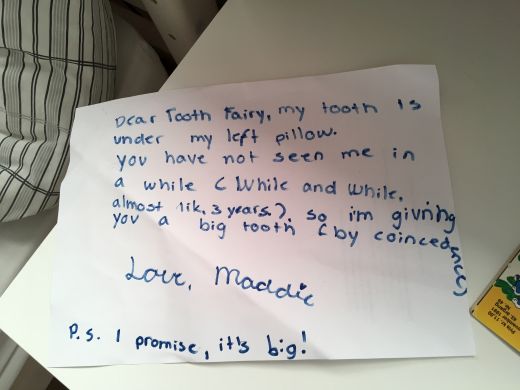 Dear Tooth Fairy, my tooth is
under my left pillow.
you have not seen me in
a while (While and While,
almost lik, 3 years.). so i'm givning
you a big tooth (by coincedence)
Love, Maddie
P.S. I promise, it's big!